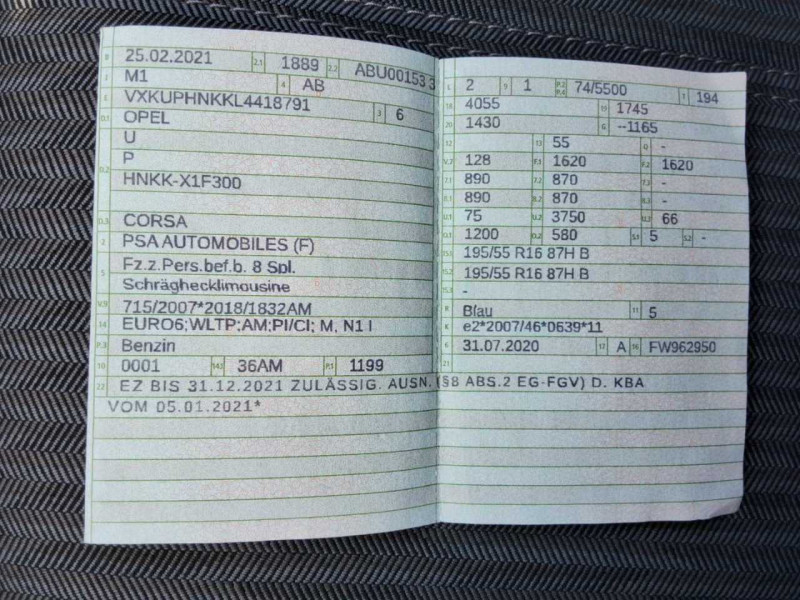 B 25.02.2021 2.1 1889 2.2 ABU00153 3
J M1 4 AB
E VXKUPHNKKL4418791 3 6
D.1 OPEL
U
D.2 P
HNKK-X1F300
D.3 CORSA
2 PSA AUTOMOBILES (F)
5 Fz.z.Pers.bef.b. 8 Spl.
Schräghecklimousine
V.9 715/2007*2018/1832AM
14 EURO6;WLTP;AM;PI/CI; M, N1 I
P.3 Benzin
10 0001 14.1 36AM P.1 1199
22 EZ BIS 31.12.2021 ZULÄSSIG. AUSN. (§8 ABS.2 EG-FGV) D. KBA
VOM 05.01.2021*
L 2 9 1 P.2 P.4 74/5500 T 194
18 4055 19 1745
20 1430 G --1165
12 13 55 Q -
V.7 128 F.1 1620 F.2 1620
7.1 890 7.2 870 7.3 -
8.1 890 8.2 870 8.3 -
U.1 75 U.2 3750 U.3 66
O.1 1200 O.2 580 S.1 5 S.2 -
15.1 195/55 R16 87H B
15.2 195/55 R16 87H B
15.3 -
R Blau 11 5
K e2*2007/46*0639*11
6 31.07.2020 17 A 16 FW962950
21